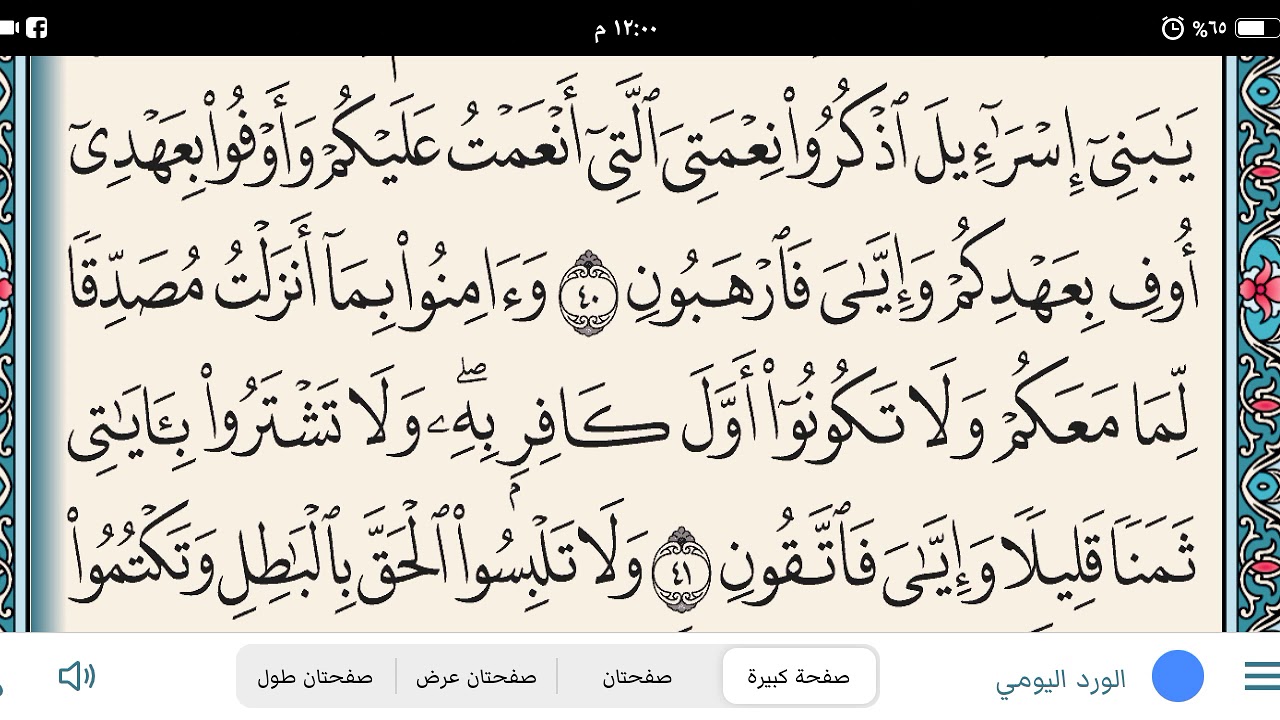 ١٢:٠٠ م
٦٥%
يَـٰبَنِىٓ إِسْرَٰٓءِيلَ ٱذْكُرُوا۟ نِعْمَتِىَ ٱلَّتِىٓ أَنْعَمْتُ عَلَيْكُمْ وَأَوْفُوا۟ بِعَهْدِىٓ
أُوفِ بِعَهْدِكُمْ وَإِيَّـٰىَ فَٱرْهَبُونِ ٤٠ وَءَامِنُوا۟ بِمَآ أَنزَلْتُ مُصَدِّقًا
لِّمَا مَعَكُمْ وَلَا تَكُونُوٓا۟ أَوَّلَ كَافِرٍۭ بِهِۦ ۖ وَلَا تَشْتَرُوا۟ بِـَٔايَـٰتِى
ثَمَنًا قَلِيلًا وَإِيَّـٰىَ فَٱتَّقُونِ ٤١ وَلَا تَلْبِسُوا۟ ٱلْحَقَّ بِٱلْبَـٰطِلِ وَتَكْتُمُوا۟
الورد اليومي
صفحة كبيرة
صفحتان
صفحتان عرض
صفحتان طول